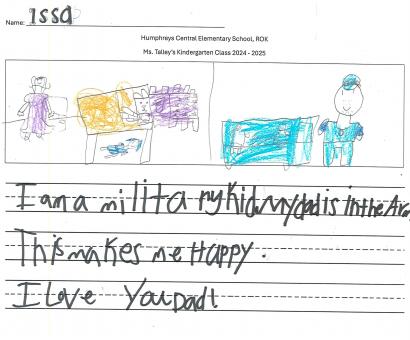 Name: Issa
Humphreys Central Elementary School, ROK
Ms. Talley's Kindergarten Class 2024 - 2025
I am a military kid. My dad is in the Arm
This makes me Happy.
I Love You Dad!